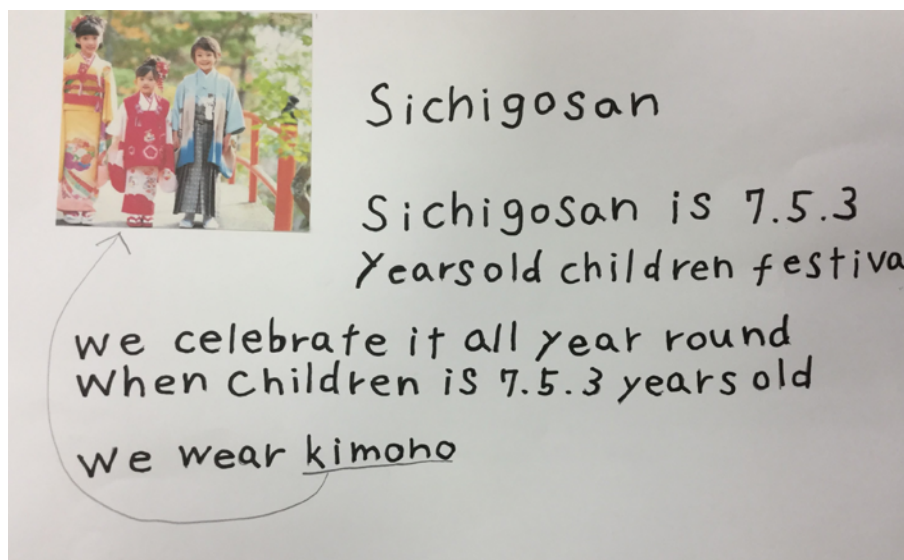 Sichigosan
Sichigosan is 7.5.3
Yearsold children festiva
we celebrate it all year round
When children is 7.5.3 years old
We wear kimono